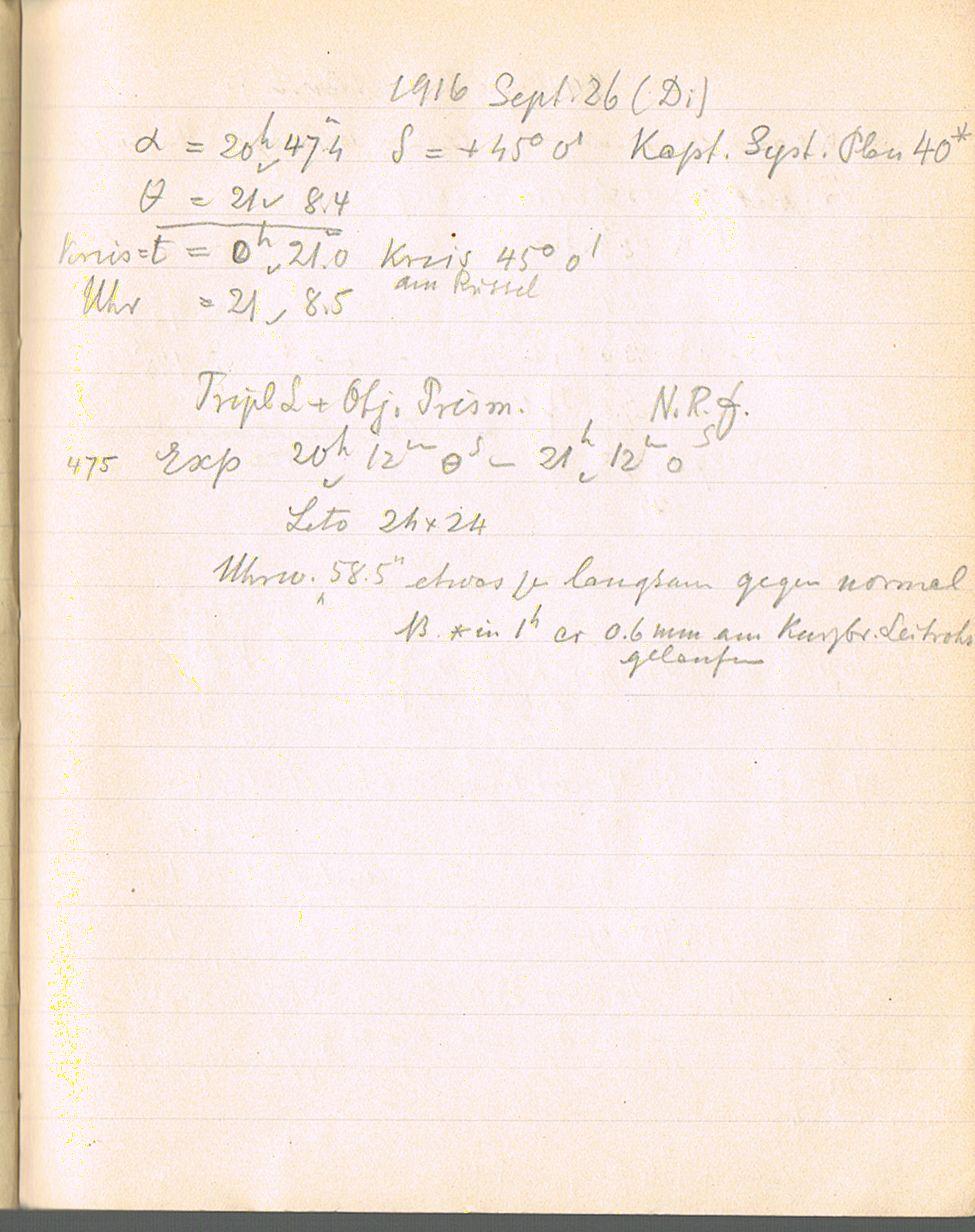 1916 Sept. 26 (Di)
α = 20ʰ 47.4ᵐ δ = +45° 0' Kapt. Syst. Plan 40*
θ = 21 8.4
Kreis = t = 0ʰ 21.0ᵐ Kreis 45° 0'
am
Uhr = 21 8.5
Tripl L + Obj. Prism. N.R.f.
475 Exp 20ʰ 12ᵐ 0ˢ – 21ʰ 12ᵐ 0ˢ
Leto 24 x 24
Uhrw. 58.5" etwas zu langsam gegen normal
NB. * in 1ʰ ca 0.6 mm am Kurzbr. Leitrohr
gelaufen